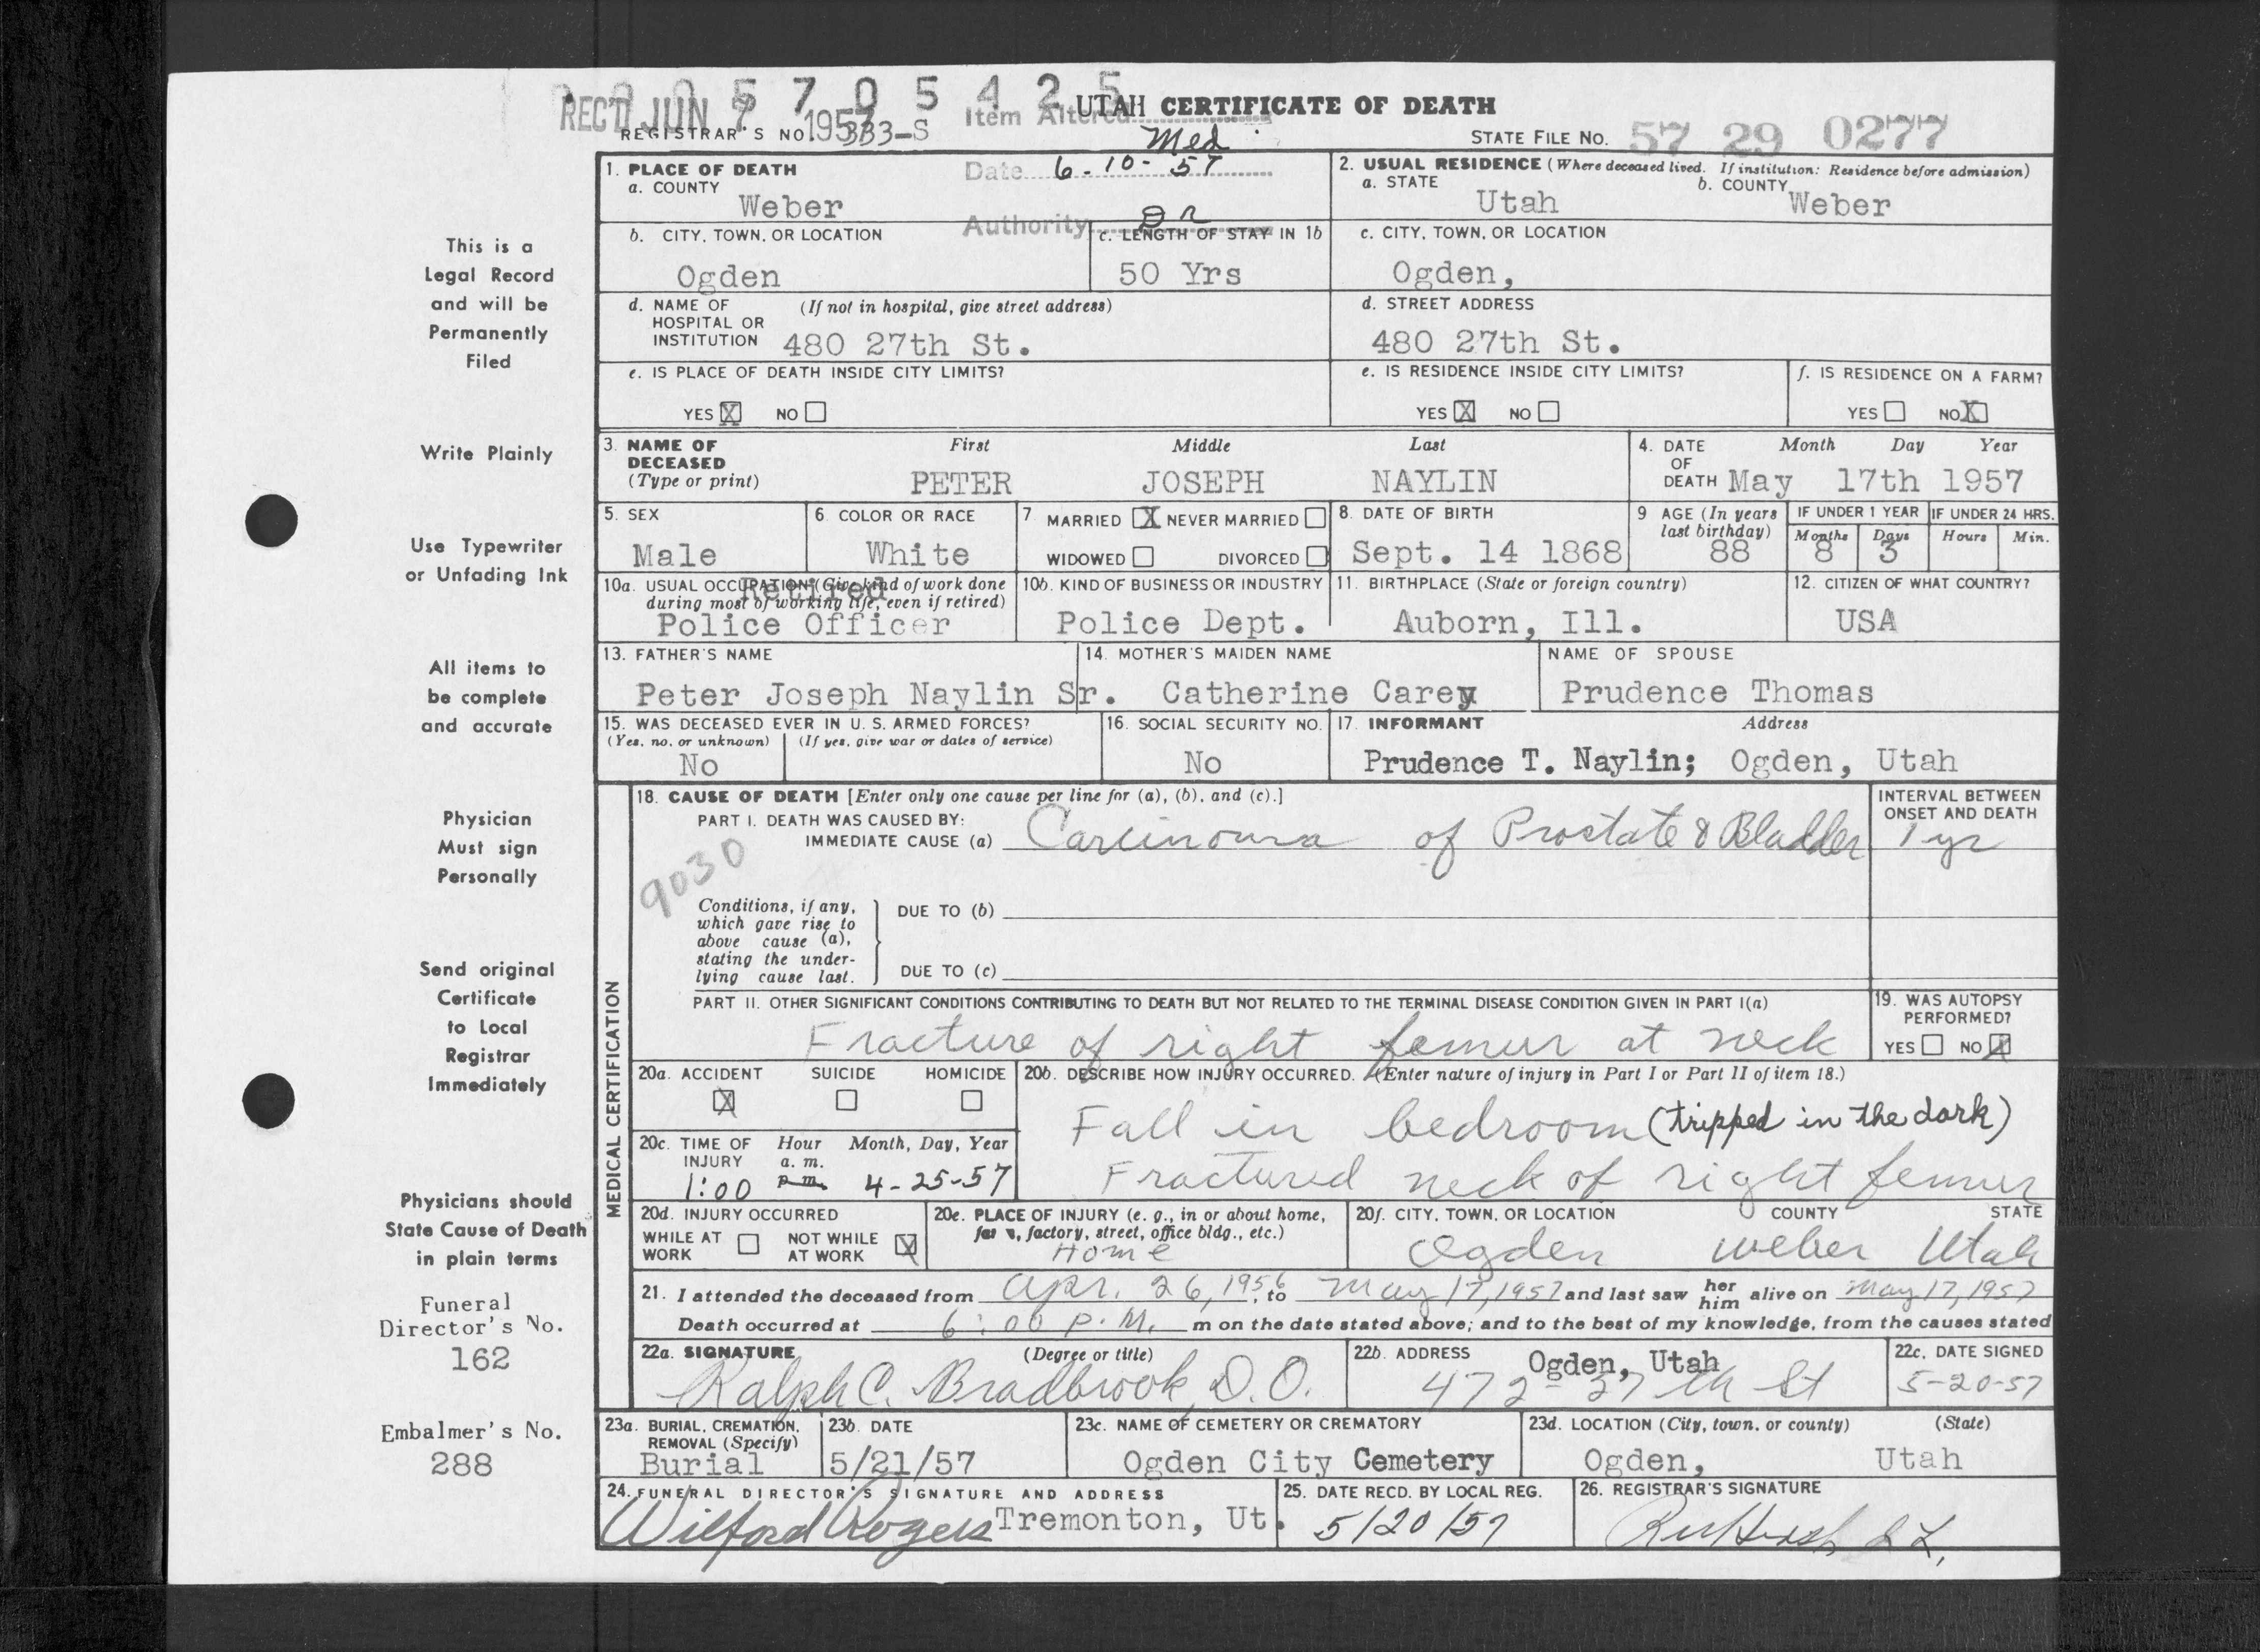 5 7 0 5 4 2 5
REC'D JUN 7 1957
Item Altered Med
UTAH CERTIFICATE OF DEATH
REGISTRAR'S NO. 333-S
STATE FILE NO. 57 29 0277
Date 6-10-57
Authority Dr
1. PLACE OF DEATH
a. COUNTY
Weber
2. USUAL RESIDENCE (Where deceased lived. If institution: Residence before admission)
a. STATE Utah b. COUNTY Weber
b. CITY, TOWN, OR LOCATION
Ogden
c. LENGTH OF STAY IN 1b
50 Yrs
c. CITY, TOWN, OR LOCATION
Ogden,
d. NAME OF HOSPITAL OR INSTITUTION (If not in hospital, give street address)
480 27th St.
d. STREET ADDRESS
480 27th St.
e. IS PLACE OF DEATH INSIDE CITY LIMITS?
YES X NO
e. IS RESIDENCE INSIDE CITY LIMITS?
YES X NO
f. IS RESIDENCE ON A FARM?
YES NO X
3. NAME OF DECEASED (Type or print)
First Middle Last
PETER JOSEPH NAYLIN
4. DATE OF DEATH
Month Day Year
May 17th 1957
5. SEX
Male
6. COLOR OR RACE
White
7. MARRIED X NEVER MARRIED
WIDOWED DIVORCED
8. DATE OF BIRTH
Sept. 14 1868
9. AGE (In years last birthday)
88
IF UNDER 1 YEAR
Months 8 Days 3
IF UNDER 24 HRS.
Hours Min.
10a. USUAL OCCUPATION (Give kind of work done during most of working life, even if retired)
Retired
Police Officer
10b. KIND OF BUSINESS OR INDUSTRY
Police Dept.
11. BIRTHPLACE (State or foreign country)
Auborn, Ill.
12. CITIZEN OF WHAT COUNTRY?
USA
13. FATHER'S NAME
Peter Joseph Naylin Sr.
14. MOTHER'S MAIDEN NAME
Catherine Carey
NAME OF SPOUSE
Prudence Thomas
15. WAS DECEASED EVER IN U. S. ARMED FORCES?
(Yes, no, or unknown) (If yes, give war or dates of service)
No
16. SOCIAL SECURITY NO.
No
17. INFORMANT Address
Prudence T. Naylin; Ogden, Utah
MEDICAL CERTIFICATION
18. CAUSE OF DEATH [Enter only one cause per line for (a), (b), and (c).]
PART I. DEATH WAS CAUSED BY:
IMMEDIATE CAUSE (a) Carcinoma of Prostate & Bladder
INTERVAL BETWEEN ONSET AND DEATH
1 yr
9030
Conditions, if any, which gave rise to above cause (a), stating the underlying cause last.
DUE TO (b)
DUE TO (c)
PART II. OTHER SIGNIFICANT CONDITIONS CONTRIBUTING TO DEATH BUT NOT RELATED TO THE TERMINAL DISEASE CONDITION GIVEN IN PART I(a)
Fracture of right femur at neck
19. WAS AUTOPSY PERFORMED?
YES NO X
20a. ACCIDENT SUICIDE HOMICIDE
X
20b. DESCRIBE HOW INJURY OCCURRED. (Enter nature of injury in Part I or Part II of item 18.)
Fall in bedroom (tripped in the dark)
Fractured neck of right femur
20c. TIME OF INJURY Hour a. m. p. m. Month, Day, Year
1:00 4-25-57
20d. INJURY OCCURRED
WHILE AT WORK NOT WHILE AT WORK X
20e. PLACE OF INJURY (e. g., in or about home, farm, factory, street, office bldg., etc.)
Home
20f. CITY, TOWN, OR LOCATION COUNTY STATE
Ogden Weber Utah
21. I attended the deceased from Apr. 26, 1956, to May 17, 1957 and last saw her him alive on May 17, 1957
Death occurred at 6:00 P.M. m on the date stated above; and to the best of my knowledge, from the causes stated
22a. SIGNATURE (Degree or title)
Ralph C. Bradbrook, D.O.
22b. ADDRESS
Ogden, Utah
472-27th St
22c. DATE SIGNED
5-20-57
23a. BURIAL, CREMATION, REMOVAL (Specify)
Burial
23b. DATE
5/21/57
23c. NAME OF CEMETERY OR CREMATORY
Ogden City Cemetery
23d. LOCATION (City, town, or county) (State)
Ogden, Utah
24. FUNERAL DIRECTOR'S SIGNATURE AND ADDRESS
Wilford Rogers Tremonton, Ut.
25. DATE RECD. BY LOCAL REG.
5/20/57
26. REGISTRAR'S SIGNATURE
This is a
Legal Record
and will be
Permanently
Filed
Write Plainly
Use Typewriter
or Unfading Ink
All items to
be complete
and accurate
Physician
Must sign
Personally
Send original
Certificate
to Local
Registrar
Immediately
Physicians should
State Cause of Death
in plain terms
Funeral
Director's No.
162
Embalmer's No.
288